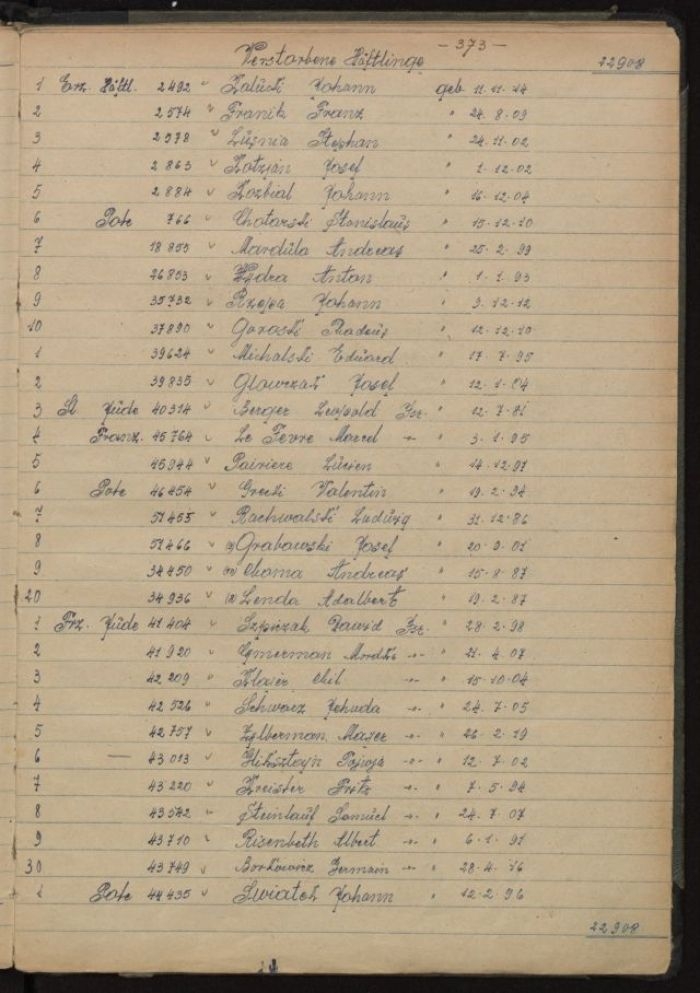 - 373 -
Verstorbene Häftlinge 22908
1 Erz. Häftl. 2492 v Zaluski Johann geb. 11.11.14
2 2574 v Franik Franz " 24.8.09
3 2578 v Luśnia Stephan " 24.11.02
4 2863 v Kotzjan Josef " 1.12.02
5 2884 v Kozbial Johann " 16.12.04
6 Pole 766 v Chotarski Stanislaus " 15.12.10
7 18855 v Mardula Andreas " 25.2.99
8 26853 v Hydra Anton " 1.1.93
9 35732 v Rzepa Johann " 3.12.12
10 37890 v Goroski Thadeus " 12.12.10
1 39624 v Michalski Eduard " 17.7.95
2 39835 v Glowczak Josef " 12.1.04
3 Sl Jude 40314 v Berger Leopold Isr. " 12.7.81
4 Franz. 45764 v Le Fevre Marcel -"- " 3.1.95
5 45944 v Pairiere Lucien " 14.12.97
6 Pole 46454 v Grecki Valentin " 19.2.94
7 51455 v Rachwalski Ludwig " 31.12.86
8 51466 v Grabowski Josef " 20.9.01
9 34450 v Chama Andreas " 15.8.87
20 34936 v Lenda Adalbert " 19.2.87
1 Frz. Jude 41404 v Szpiczak Dawid Isr. " 28.2.98
2 41920 v Cymerman Mordka -"- " 21.4.07
3 42209 v Klajer Chil -"- " 15.10.04
4 42526 v Schwarz Jehuda -"- " 24.7.05
5 42757 v Zylberman Majer -"- " 26.2.19
6 — 43013 v -"- " 12.7.02
7 43220 v Kreister Fritz -"- " 7.5.94
8 43542 v Steinlauf Samuel -"- " 24.7.07
9 43710 v Risenbeth Albert -"- " 6.1.91
30 43749 v Borkowicz Germain -"- " 28.4.16
1 Pole 44435 v Swiatek Johann " 12.2.96
22908